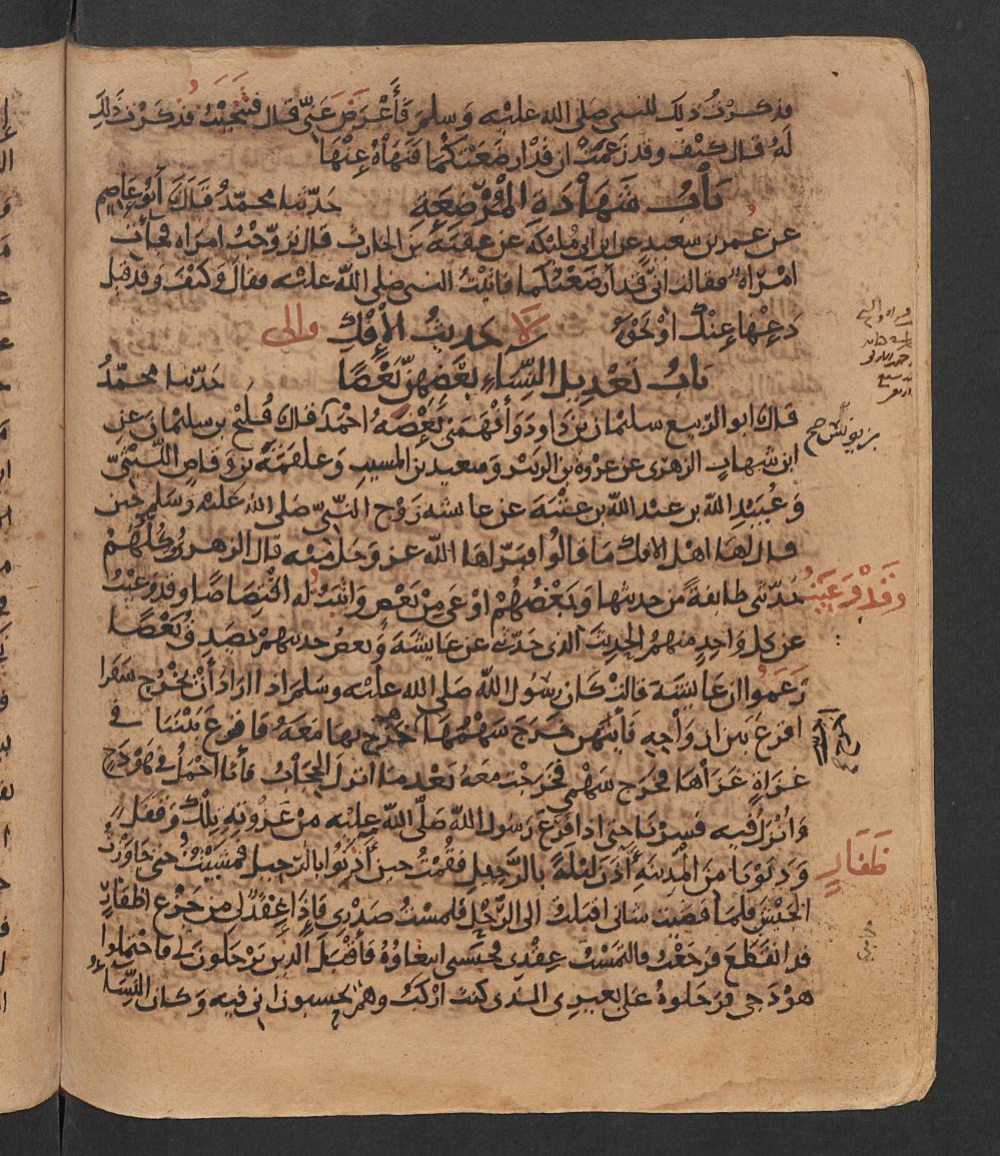 فذكرت ذلك للنبي صلى الله عليه وسلم فأعرض عني قال فتنحيت فذكرت ذلك
له قال كيف وقد زعمت ان قد ارضعتكما فنهاه عنها
باب شهادة المرضعة حدثنا محمد قال أبو عاصم
عن عمر بن سعيد عن ابن ابي مليكة عن عقبة بن الحارث قال تزوجت امراة فجأت
امرأة فقالت اني قد أرضعتكما فاتيت النبي صلى الله عليه فقال وكيف وقد قيل
دعها عنك او نحوه لا حديث الإفك والى
باب تعديل النساء بعضهن بعضا حدثنا محمد
قال ابو الربيع سليمان بن داود وأفهمني بعضه احمد قال فليح بن سليمان عن
ابن شهاب الزهري عن عروة بن الزبير وسعيد بن المسيب وعلقمة بن وقاص الليثي
وعبيد الله بن عبد الله بن عتبة عن عائشة زوج النبي صلى الله عليه وسلم حين
قال لها اهل الافك ما قالوا فبرّاها الله عز وجل منه قال الزهري وكلهم
حدثني طائفة من حديثها وبعضهم اوعى من بعض واثبت له اقتصاصا وقد وعيت
عن كل واحد منهم الحديث الذي حدثني عن عائشة وبعض حديثهم يصدق بعضا
زعموا ان عائشة قالت كان رسول الله صلى الله عليه وسلم اذا اراد أن يخرج سفرا
اقرع بين ازواجه فأيتهن خرج سهمها اخرج بها معه فاقرع بيننا في
غزاة غزاها فخرج سهمي فخرجت معه بعد ما انزل الحجاب فأنا احمل في هودج
وانزل فيه فسرنا حتى اذا فرغ رسول الله صلى الله عليه من غزوته تلك وقفل
ودنونا من المدينة أذن ليلة بالرحيل فقمت حين آذنوا بالرحيل فمشيت حتى جاوزت
الجيش فلما قضيت شاني اقبلت الى الرحل فلمست صدري فإذا عقد لي من جزع اظفار
قد انقطع فرجعت فالتمست عقدي فحبسني ابتغاؤه فأقبل الذين يرحلون لي فاحتملوا
هودجي فرحلوه على بعيري الذي كنت اركب وهم يحسبون اني فيه وكان النساء
بن يونس صح
وقد وعيت
ظفار